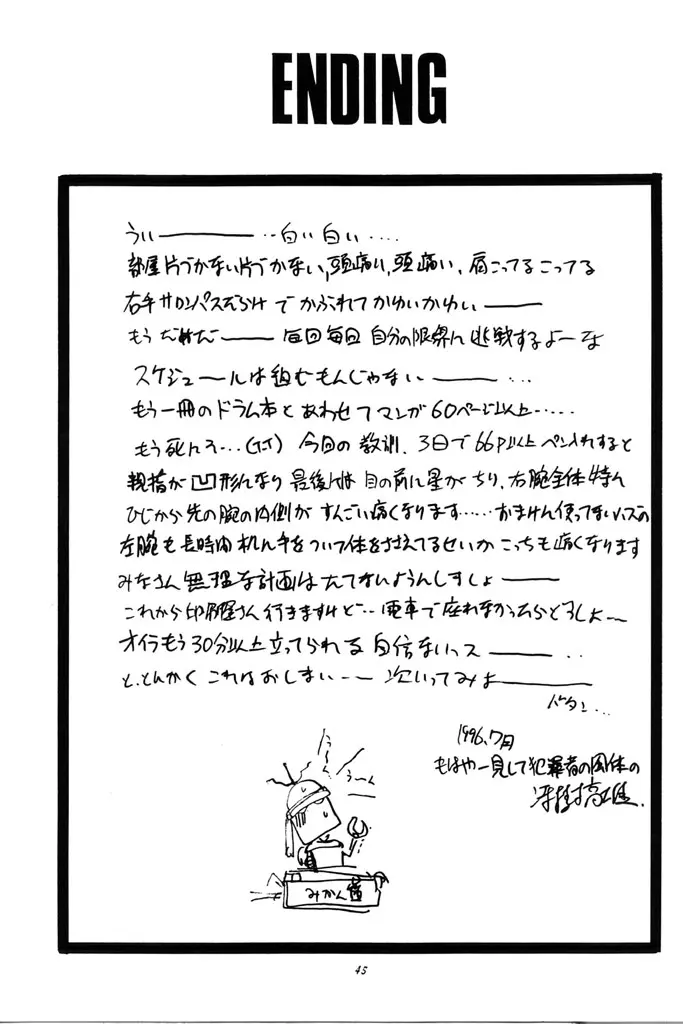 ENDING
うぃ―――― ‥白い白い‥‥
部屋片づかない片づかない,頭痛い,頭痛い、肩こってるこってる
右手サロンパスだらけでかぶれてかゆいかゆい――
もうだめだ―― 毎回毎回自分の限界に挑戦するよーな
スケジュールは組むもんじゃない―― ‥‥
もう一冊のドラム本とあわせてマンガ60ページ以上‥‥‥
もう死んえ‥‥(T.T) 今回の教訓、3日で66P以上ペン入れすると
親指が凹形になり最後には目の前に星がちり、右腕全体特に
ひじから先の腕の内側がすんごい痛くなります‥‥‥おまけに使ってないハズの
左腕も長時間机に手をついて体をささえてるせいかこっちも痛くなります
みなさん無理な計画はたてないようにしましょ――
これから印刷屋さん行きますけど‥‥電車で座れなかったらどうしよ~
オイラもう30分以上立ってられる自信ないっス―― ‥
と、とにかくこれはおしまい―― 次いってみよ――
バタン‥‥
1996.7月
もはや一見して犯罪者の風体の
う~ん
う~ん
みかん
45